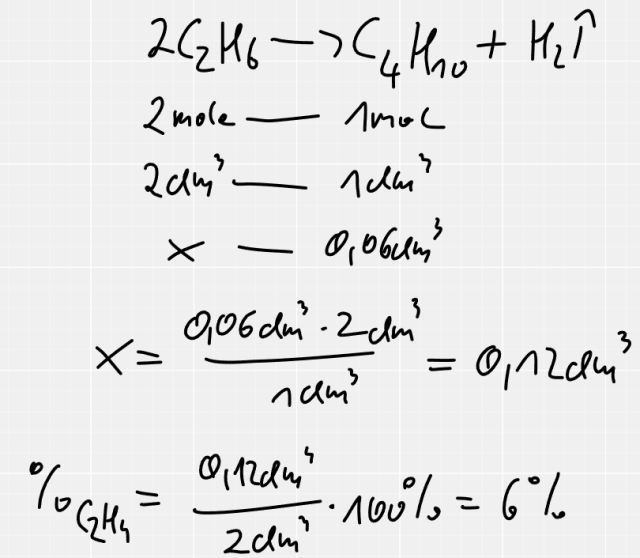 2C₂H₆ → C₄H₁₀ + H₂↑
2mole — 1mol
2dm³ — 1dm³
x — 0,06dm³
x = (0,06dm³ · 2dm³)/(1dm³) = 0,12dm³
%C₂H₄ = (0,12dm³)/(2dm³) · 100% = 6%